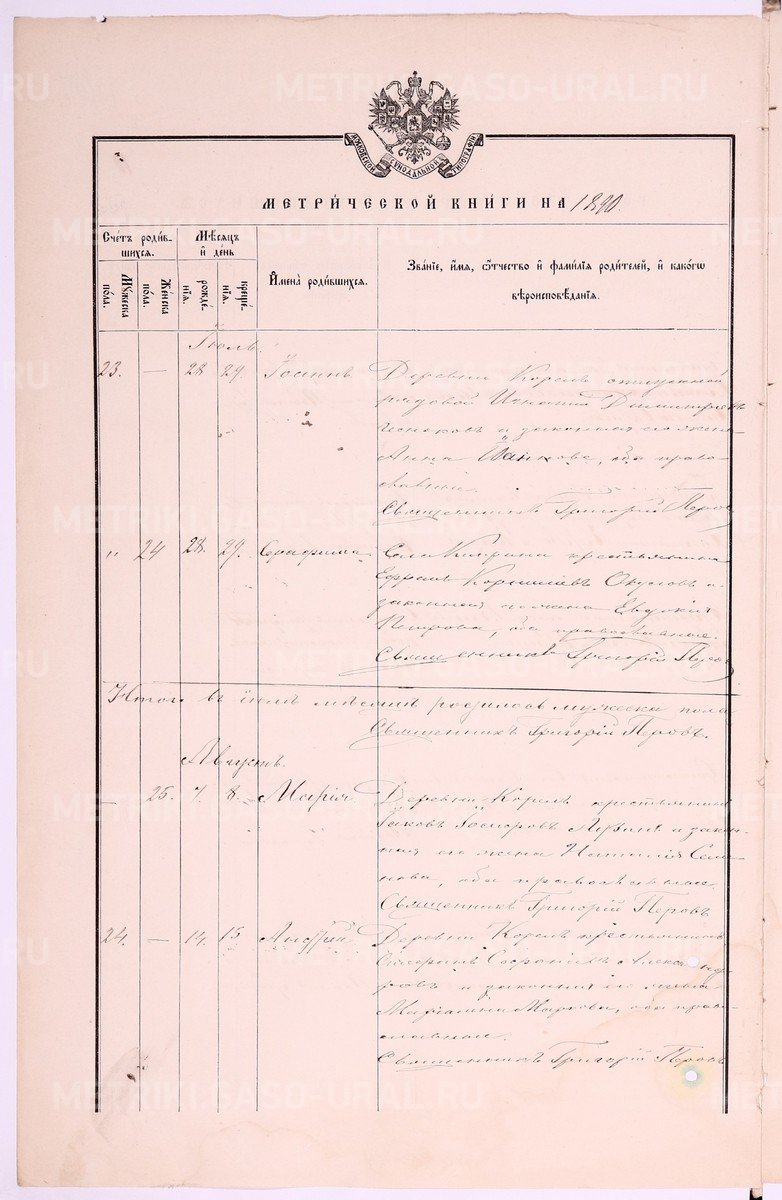 МОСКОВСКОЙ СѴНОДАЛЬНОЙ ТИПОГРАФІИ
МЕТРИ́ЧЕСКОЙ КНИ́ГИ НА 1890.
Счетъ роди́в-
шихся.
Мѣсяцъ
и день
Мꙋжеска
пола.
Женска
пола.
рожде-
нія.
креще-
нія.
Имена̀ роди́вшихся.
Зва́нїе, и́мя, ѻ҆́тчество и҆ фами́лїа роди́телей, и҆ како́гѡ
вѣроисповѣ́данїѧ.
Іюль.
23. — 28 29. Іоаннъ. Деревни Корель отпускной
рядовой Игнатій
и законная его жена
Анна, оба право-
славные.
Священникъ Григорій Перовъ
„ 24 28. 29. Серафима. Села крестьянинъ
Ефремъ и
законная его жена Евдокія
Петрова, оба православные.
Священникъ Григорій Перовъ
Итого въ іюлѣ мѣсяцѣ родилось мужеска пола
Священникъ Григорій Перовъ.
Августъ.
— 25. 7. 8. Марія. Деревни Корель крестьянинъ
Яковъ и закон-
ная его жена Наталія Семе-
нова, оба православные.
Священникъ Григорій Перовъ
24. — 14. 15. Андрей. Деревни Корель крестьянинъ
Александ-
ровъ и законная его жена
Маріамна Маркова, оба право-
славные.
Священникъ Григорій Перовъ
METRIKI.GASO-URAL.RU